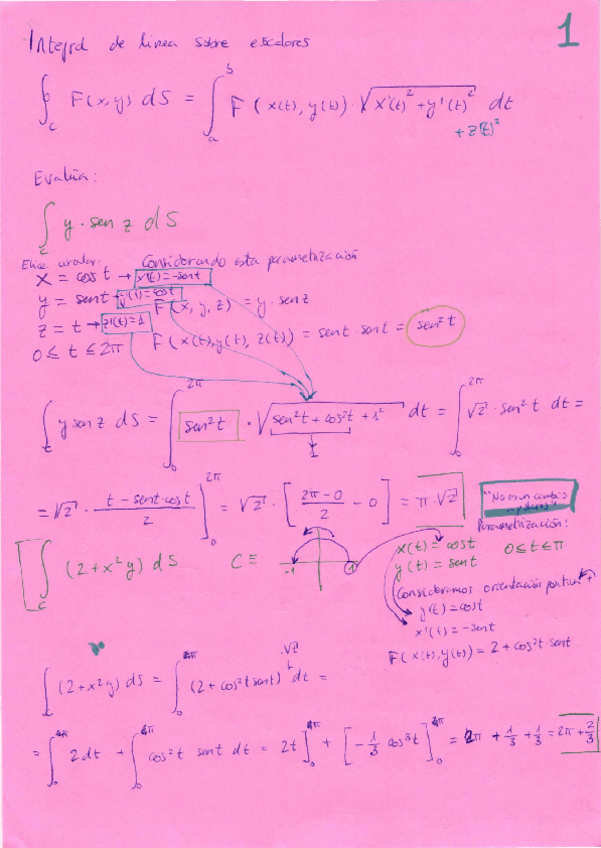 1
Integral de linea sobre escalares
∮_C F(x,y) dS = ∫_a^b F(x(t), y(t)) · √(x'(t)² + y'(t)²) dt
+ z'(t)²
Evalúa:
∫_C y · sen z dS
Considerando esta parametrización
x = cos t → x'(t) = -sen t
y = sen t → y'(t) = cos t F(x, y, z) = y · sen z
z = t → z'(t) = 1 F(x(t), y(t), z(t)) = sen t · sen t = sen² t
0 ≤ t ≤ 2π
∫_C y sen z dS = ∫_0^2π sen² t · √(sen² t + cos² t + 1²) dt = ∫_0^2π √2 · sen² t dt =
1
= √2 · (t - sen t cos t)/2 ]_0^2π = √2 · [(2π - 0)/2 - 0] = π · √2
"No es un cambio
Parametrización:
∫_C (2 + x² y) dS C ≡ -1 1 x(t) = cos t 0 ≤ t ≤ π
y(t) = sen t
Consideramos orientación positiva +
y'(t) = cos t
x'(t) = -sen t
F(x(t), y(t)) = 2 + cos² t · sen t
∫_C (2 + x² y) dS = ∫_0^π (2 + cos² t sen t) · √1 dt =
= ∫_0^π 2 dt + ∫_0^π cos² t sen t dt = 2t ]_0^π + [-1/3 cos³ t]_0^π = 2π + 1/3 + 1/3 = 2π + 2/3